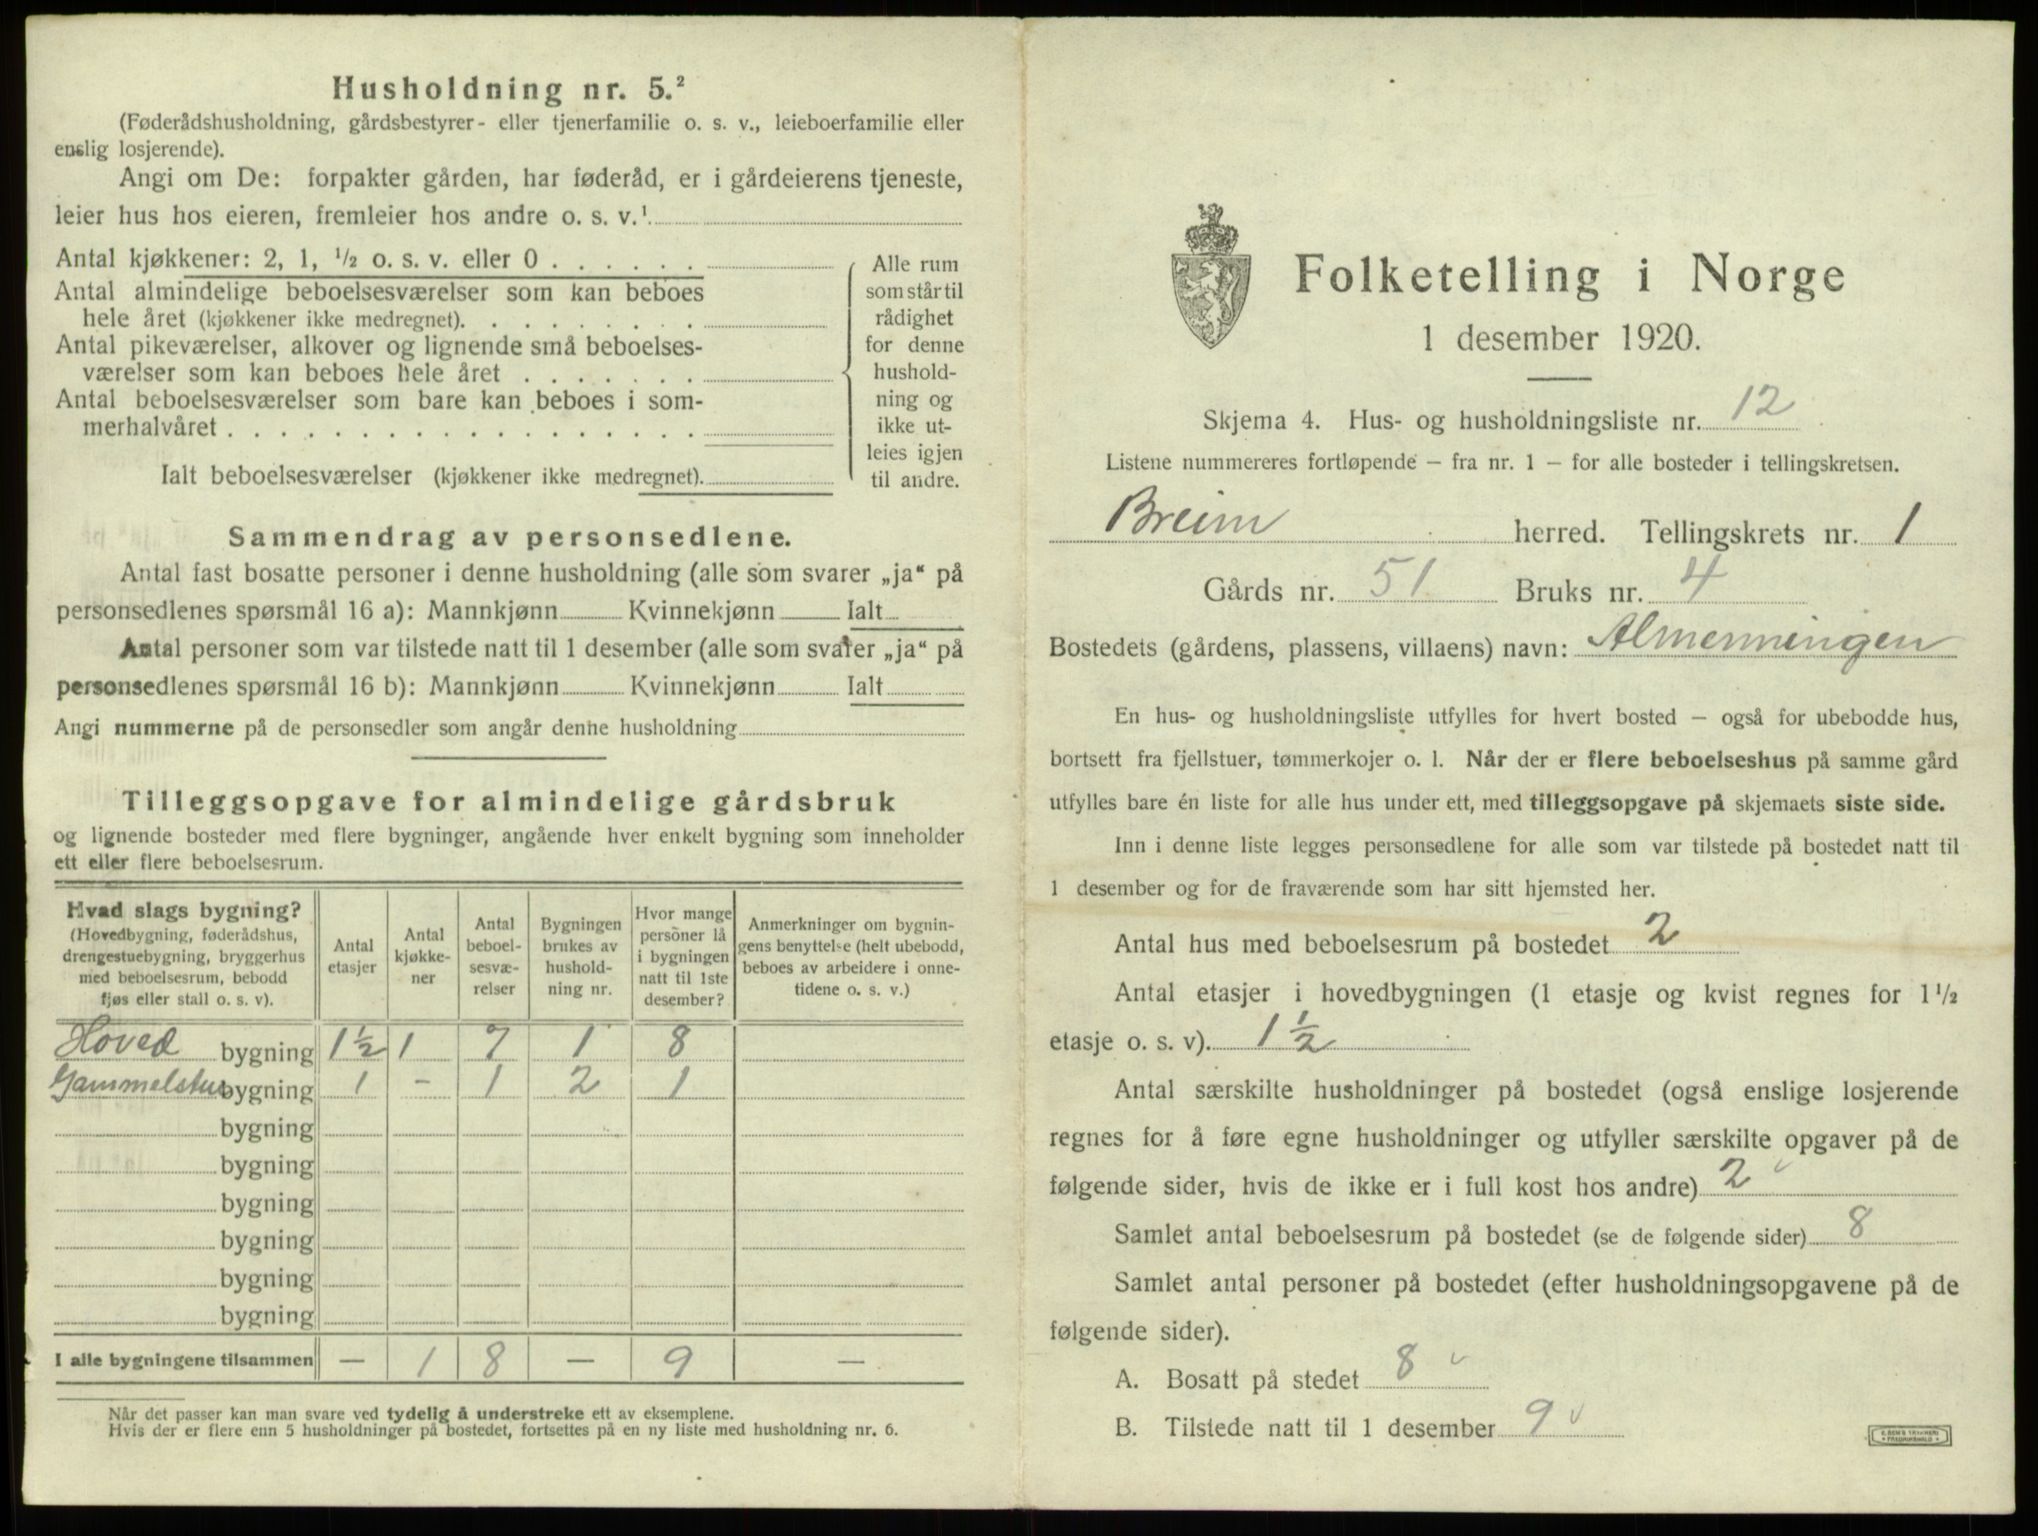 Husholdning nr. 5.²
(Føderådshusholdning, gårdsbestyrer- eller tjenerfamilie o. s. v., leieboerfamilie eller
enslig losjerende).
Angi om De: forpakter gården, har føderåd, er i gårdeierens tjeneste,
leier hus hos eieren, fremleier hos andre o. s. v.¹
Antal kjøkkener: 2, 1, ½ o. s. v. eller 0 . . . . . .
Antal almindelige beboelsesværelser som kan beboes
hele året (kjøkkener ikke medregnet). . . . . . . . .
Antal pikeværelser, alkover og lignende små beboelses-
værelser som kan beboes hele året . . . . . . .
Antal beboelsesværelser som bare kan beboes i som-
merhalvåret . . . . . . . . . . . . . . . . . .
Ialt beboelsesværelser (kjøkkener ikke medregnet).
Alle rum
som står til
rådighet
for denne
hushold-
ning og
ikke ut-
leies igjen
til andre.
Sammendrag av personsedlene.
Antal fast bosatte personer i denne husholdning (alle som svarer „ja“ på
personsedlenes spørsmål 16 a): Mannkjønn Kvinnekjønn Ialt
Antal personer som var tilstede natt til 1 desember (alle som svarer „ja“ på
personsedlenes spørsmål 16 b): Mannkjønn Kvinnekjønn Ialt
Angi nummerne på de personsedler som angår denne husholdning
Tilleggsopgave for almindelige gårdsbruk
og lignende bosteder med flere bygninger, angående hver enkelt bygning som inneholder
ett eller flere beboelsesrum.
Hvad slags bygning?
(Hovedbygning, føderådshus,
drengestuebygning, bryggerhus
med beboelsesrum, bebodd
fjøs eller stall o. s. v).
Antal
etasjer
Antal
kjøkke-
ner
Antal
beboel-
sesvæ-
relser
Bygningen
brukes av
hushold-
ning nr.
Hvor mange
persöner lå
i bygningen
natt til 1ste
desember?
Anmerkninger om bygnin-
gens benyttelse (helt ubebodd,
beboes av arbeidere i onne-
tidene o. s. v.)
Hoved bygning 1½ 1 7 1 8
Gammelstue bygning 1 - 1 2 1
bygning
bygning
bygning
bygning
bygning
bygning
I alle bygningene tilsammen — 1 8 — 9 —
Når det passer kan man svare ved tydelig å understreke ett av eksemplene.
Hvis der er flere enn 5 husholdninger på bostedet, fortsettes på en ny liste med husholdning nr. 6.
Folketelling i Norge
1 desember 1920.
Skjema 4. Hus- og husholdningsliste nr. 12
Listene nummereres fortløpende — fra nr. 1 — for alle bosteder i tellingskretsen.
Breim herred. Tellingskrets nr. 1
Gårds nr. 51 Bruks nr. 4
Bostedets (gårdens, plassens, villaens) navn: Almenningen
En hus- og husholdningsliste utfylles for hvert bosted — også for ubebodde hus,
bortsett fra fjellstuer, tømmerkojer o. l. Når der er flere beboelseshus på samme gård
utfylles bare én liste for alle hus under ett, med tilleggsopgave på skjemaets siste side.
Inn i denne liste legges personsedlene for alle som var tilstede på bostedet natt til
1 desember og for de fraværende som har sitt hjemsted her.
Antal hus med beboelsesrum på bostedet 2
Antal etasjer i hovedbygningen (1 etasje og kvist regnes for 1½
etasje o. s. v). 1½
Antal særskilte husholdninger på bostedet (også enslige losjerende
regnes for å føre egne husholdninger og utfyller særskilte opgaver på de
følgende sider, hvis de ikke er i full kost hos andre) 2
Samlet antal beboelsesrum på bostedet (se de følgende sider) 8
Samlet antal personer på bostedet (efter husholdningsopgavene på de
følgende sider).
A. Bosatt på stedet 8
B. Tilstede natt til 1 desember 9